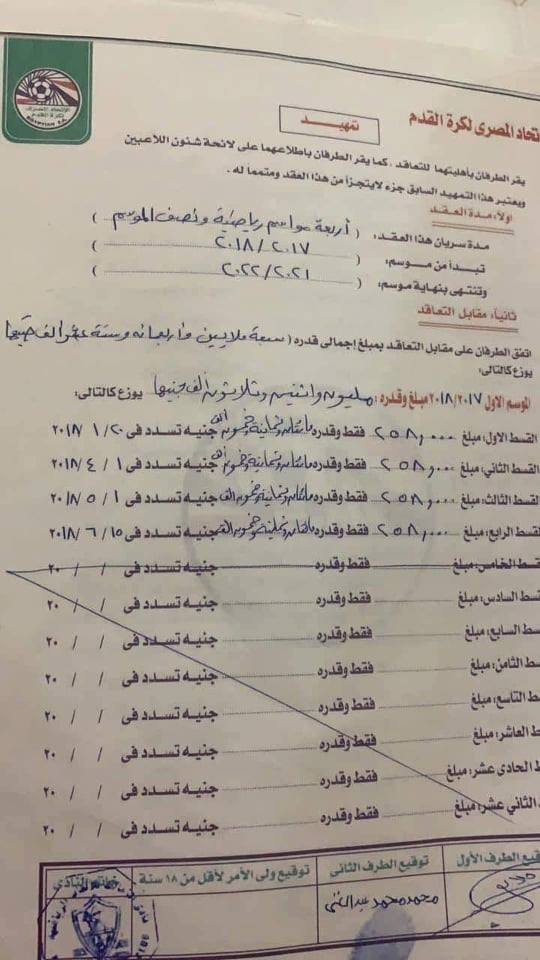 الاتحاد المصرى لكرة القدم
EGYPTIAN F.A.
تحاد المصرى لكرة القدم
تمهيد
يقر الطرفان بأهليتهما للتعاقد، كما يقر الطرفان باطلاعهما على لائحة شئون اللاعبين
ويعتبر هذا التمهيد السابق جزء لايتجزأ من هذا العقد ومتمماً له.
أولاً: مدة العقد
مدة سريان هذا العقد: ( أربعة مواسم رياضية ونصف الموسم )
تبدأ من موسم: ( ٢٠١٧/٢٠١٨ )
وتنتهى بنهاية موسم: ( ٢٠٢١/٢٠٢٢ )
ثانياً: مقابل التعاقد
اتفق الطرفان على مقابل التعاقد بمبلغ إجمالى قدره ( سبعة ملايين وأربعمائه وستة عشر الف جنيها
يوزع كالتالى:
الموسم الأول ٢٠١٧/٢٠١٨ مبلغ وقدره: مليون واثنين وثلاثون الف جنيها يوزع كالتالى:
القسط الأول: مبلغ ٢٥٨,٠٠٠ فقط وقدره مائتان وثمانية وخمسون الف جنيه تسدد فى ٢٠ / ١ / ٢٠١٨
القسط الثانى: مبلغ ٢٥٨,٠٠٠ فقط وقدره مائتان وثمانية وخمسون الف جنيه تسدد فى ١ / ٤ / ٢٠١٨
القسط الثالث: مبلغ ٢٥٨,٠٠٠ فقط وقدره مائتان وثمانية وخمسون الف جنيه تسدد فى ١ / ٥ / ٢٠١٨
القسط الرابع: مبلغ ٢٥٨,٠٠٠ فقط وقدره مائتان وثمانية وخمسون الف جنيه تسدد فى ١٥ / ٦ / ٢٠١٨
قسط الخامس: مبلغ فقط وقدره جنيه تسدد فى / / ٢٠
قسط السادس: مبلغ فقط وقدره جنيه تسدد فى / / ٢٠
سط السابع: مبلغ فقط وقدره جنيه تسدد فى / / ٢٠
سط الثامن: مبلغ فقط وقدره جنيه تسدد فى / / ٢٠
سط التاسع: مبلغ فقط وقدره جنيه تسدد فى / / ٢٠
سط العاشر: مبلغ فقط وقدره جنيه تسدد فى / / ٢٠
ط الحادى عشر: مبلغ فقط وقدره جنيه تسدد فى / / ٢٠
ط الثانى عشر: مبلغ فقط وقدره جنيه تسدد فى / / ٢٠
توقيع الطرف الأول توقيع الطرف الثانى توقيع ولى الأمر لأقل من ١٨ سنة خاتم النادى
محمد محمد عبد الغنى